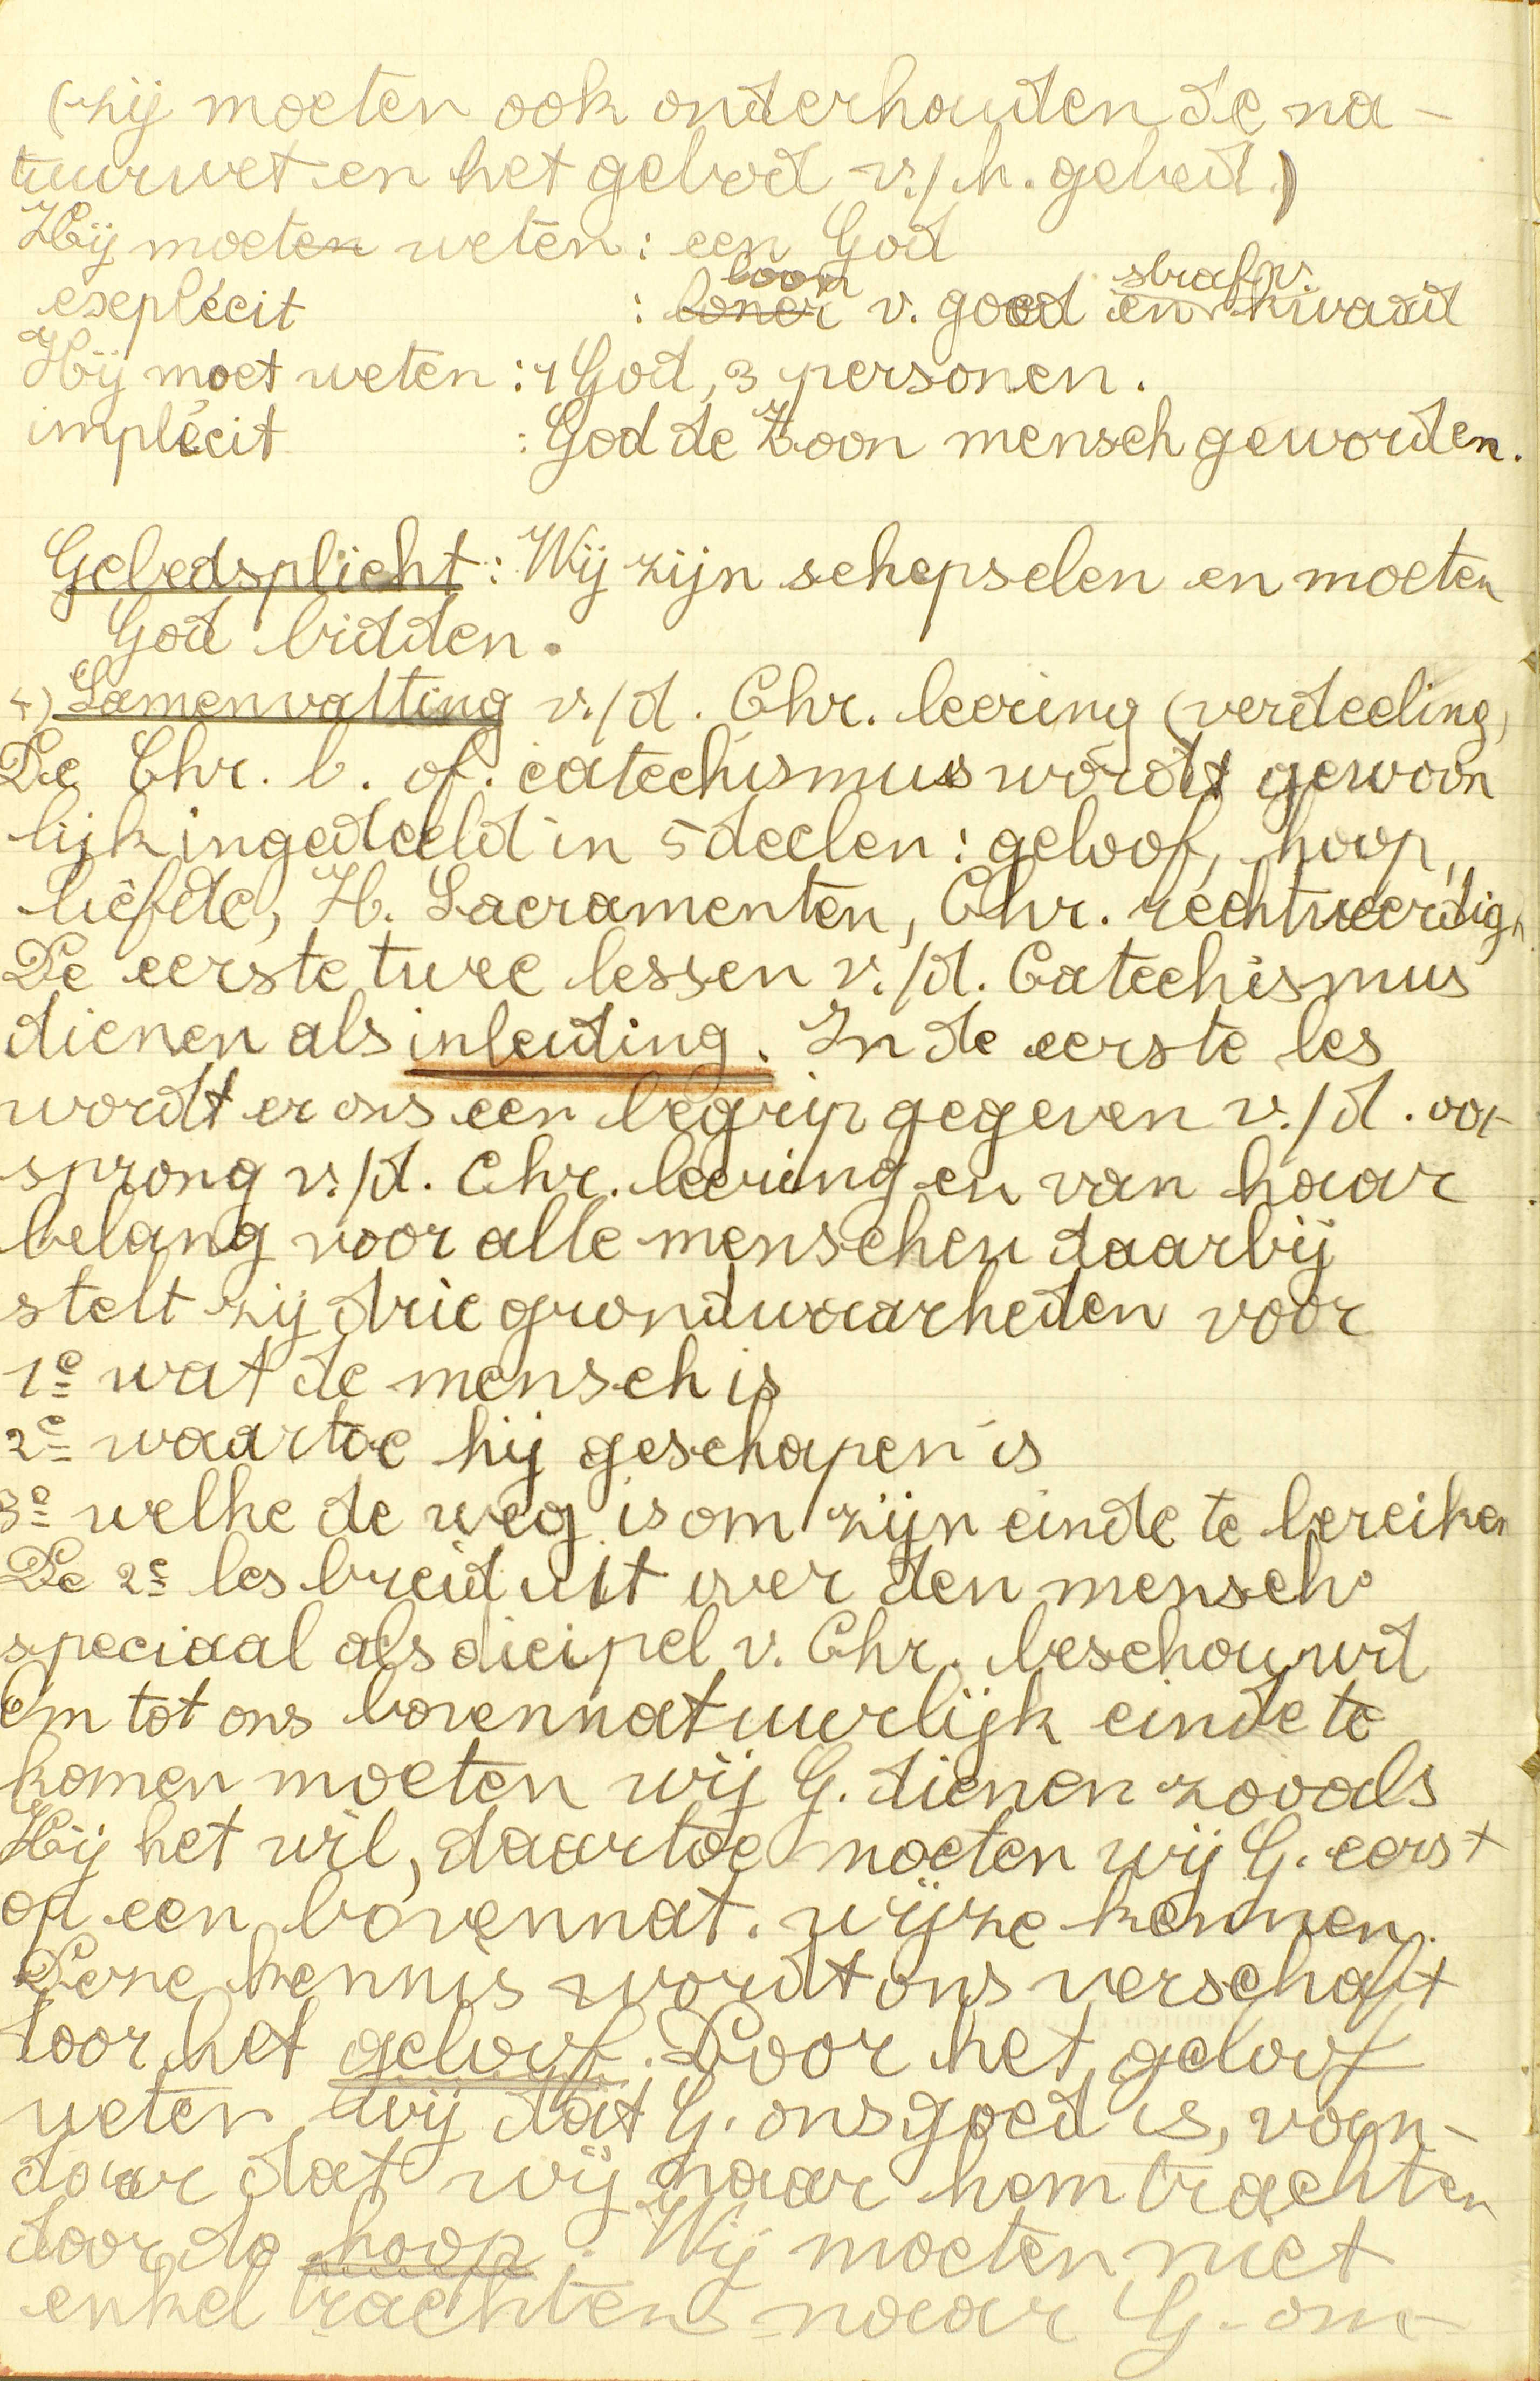 (zij moeten ook onderhouden de na-
tuurwet en het gebod v./h. gebed.)
Hij moeten weten : een God
loon strafv.
expliciet : loner v. goed en kwaad
Hij moet weten : 1 God, 3 personen.
impliciet : God de Zoon mensch geworden.
Gebedsplicht : Wij zijn schepselen en moeten
God bidden.
4) Samenvatting v./d. Chr. leering (verdeeling)
De Chr. l. of catechismus wordt gewoon
lijk ingedeeld in 5 deelen : geloof, hoop,
liefde, H. Sacramenten, Chr. rechtveerdigh
De eerste twee lessen v./d. Catechismus
dienen als inleiding. In de eerste les
wordt er ons een begrip gegeven v./d. oor
sprong v./d. Chr. leering en van haar
belang voor alle menschen daarbij
stelt zij drie grondwaarheden voor
1e wat de mensch is
2e waartoe hij geschapen is
3e welke de weg is om zijn einde te bereiken
De 2e les breid uit over den mensch
speciaal als dicipel v. Chr. beschouwd
Om tot ons bovennatuurlijk einde te
komen moeten wij G. dienen zooals
Hij het wil, daartoe moeten wij G. eerst
op een bovennat. wijze kennen.
Deze kennis wordt ons verschaft
door het geloof. Door het geloof
weten wij dat G. ons goed is, van-
daar dat wij naar hem trachten
door de hoop. Wij moeten niet
enkel trachten naar G. om